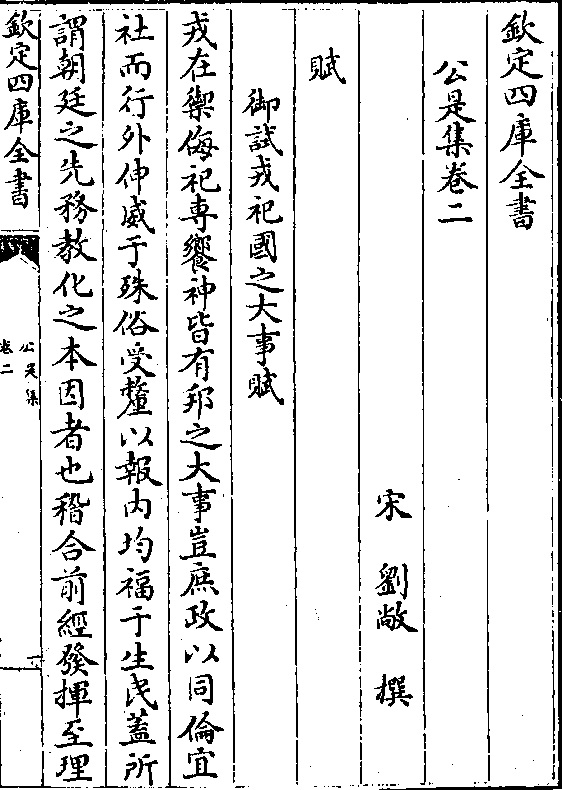 欽定四庫全書
公是集卷二
宋 劉敞 撰
賦
御試戎祀國之大事賦
戎在禦侮祀專饗神皆有邦之大事豈庶政以同倫宜
社而行外伸威于殊俗受釐以報内均福于生民蓋所
謂朝廷之先務教化之本因者也稽合前經發揮至理
欽定四庫全書
公是集
卷二
一